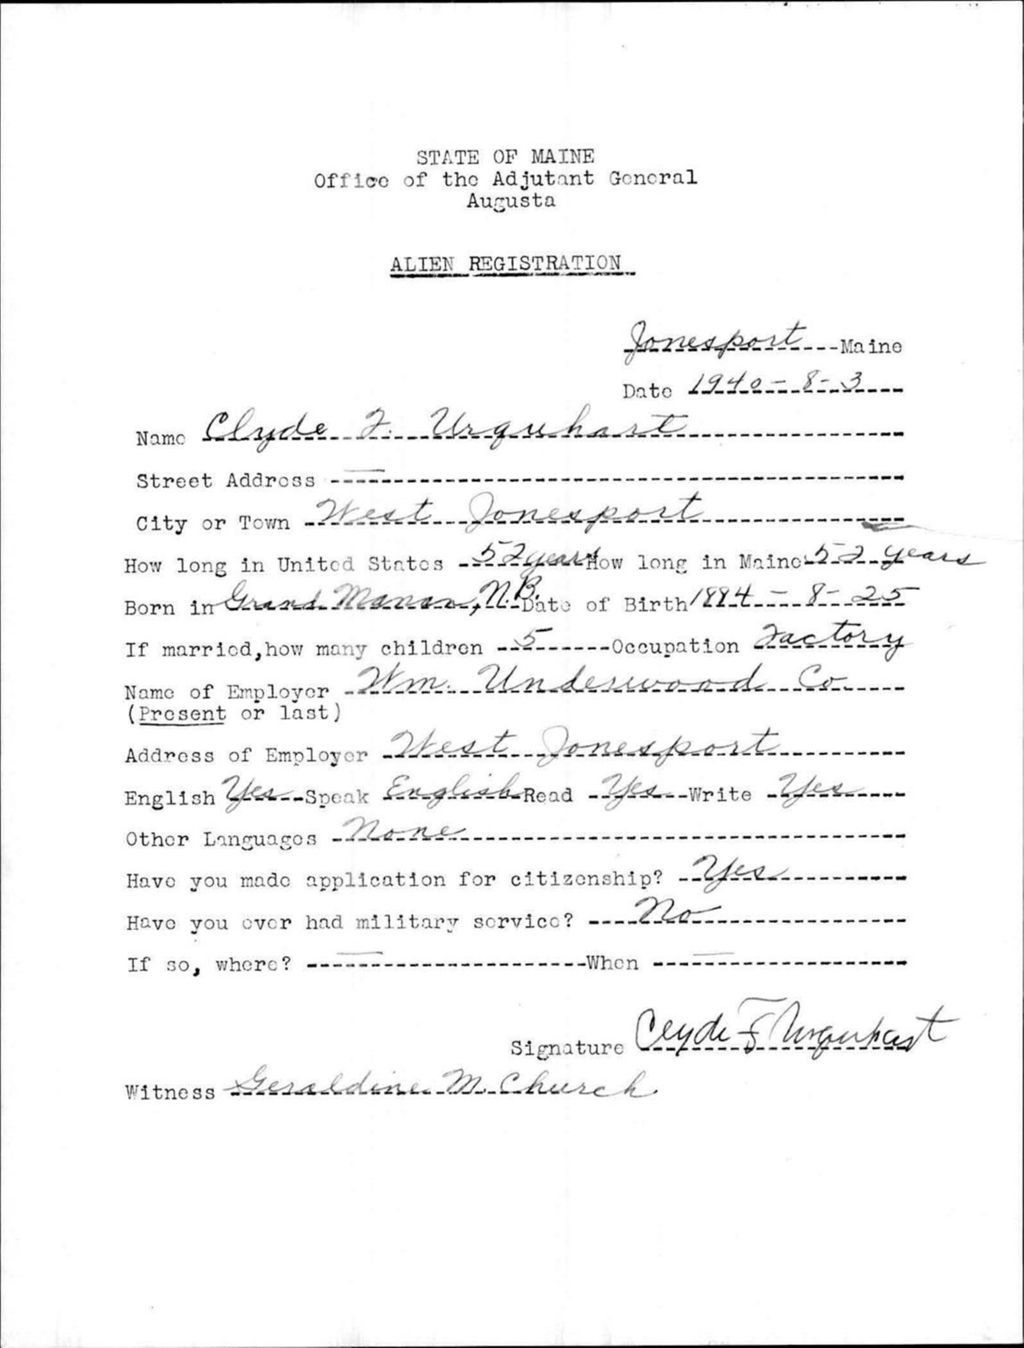 STATE OF MAINE
Office of the Adjutant General
Augusta
ALIEN REGISTRATION
Jonesport Maine
Date 1940-8-3
Name Clyde F. Urquhart
Street Address —
City or Town West Jonesport
How long in United States 52 years How long in Maine 52 years
Born in Grand Manan, N.B. Date of Birth 1884-8-25
If married, how many children 5 Occupation Factory
Name of Employer Wm. Underwood Co.
(Present or last)
Address of Employer West Jonesport
English Yes Speak English Read Yes Write Yes
Other Languages None
Have you made application for citizenship? Yes
Have you ever had military service? No
If so, where? — When —
Signature Clyde F Urquhart
Witness Geraldine M. Church